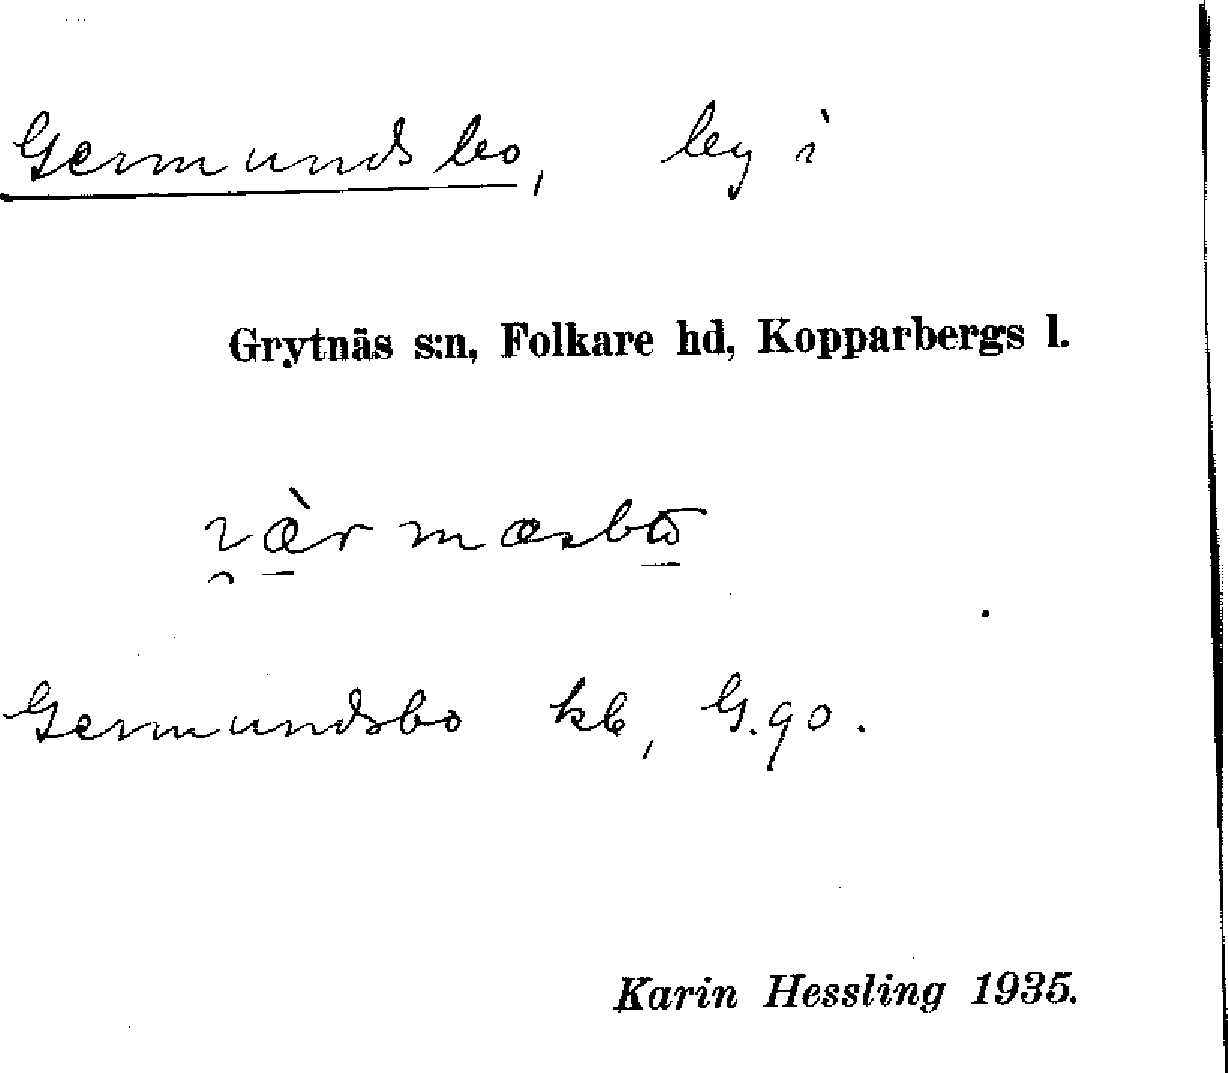 Germundsbo, by i
Grytnäs s:n, Folkare hd, Kopparbergs l.
Germundsbo kb, G.90.
Karin Hessling 1935.